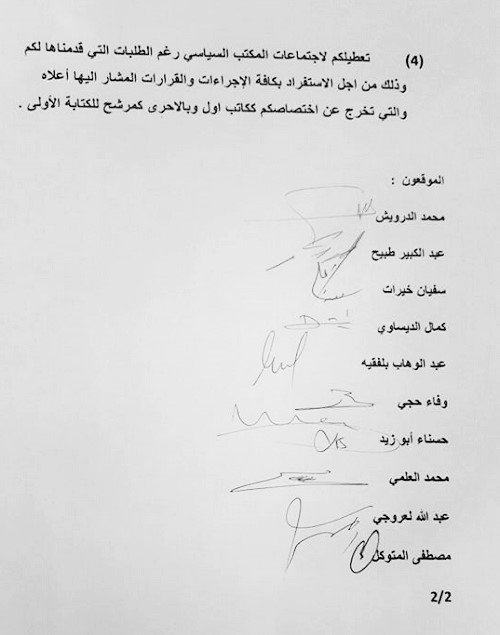 (4) تعطيلكم لاجتماعات المكتب السياسي رغم الطلبات التي قدمناها لكم
وذلك من اجل الاستفراد بكافة الإجراءات والقرارات المشار اليها أعلاه
والتي تخرج عن اختصاصكم ككاتب اول وبالاحرى كمرشح للكتابة الأولى .
الموقعون :
محمد الدرويش
عبد الكبير طبيح
سفيان خيرات
كمال الديساوي
عبد الوهاب بلفقيه
وفاء حجي
حسناء أبو زيد
محمد العلمي
عبد الله لعروجي
مصطفى المتوكل
2/2